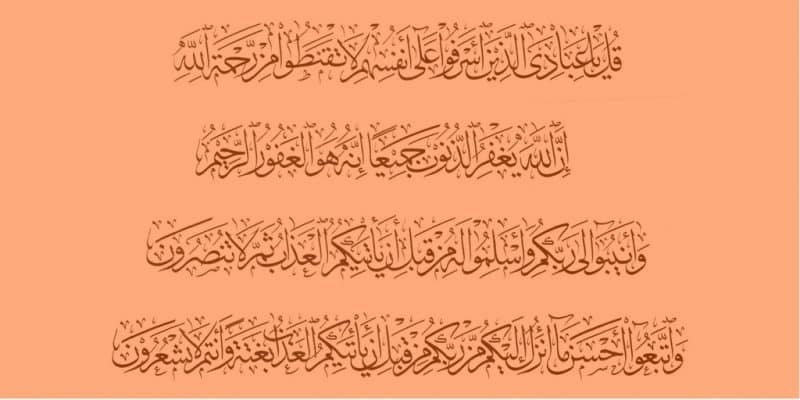 قُلْ يَا عِبَادِيَ الَّذِينَ أَسْرَفُوا عَلَى أَنفُسِهِمْ لَا تَقْنَطُوا مِن رَّحْمَةِ اللَّهِ
إِنَّ اللَّهَ يَغْفِرُ الذُّنُوبَ جَمِيعًا إِنَّهُ هُوَ الْغَفُورُ الرَّحِيمُ
وَأَنِيبُوا إِلَى رَبِّكُمْ وَأَسْلِمُوا لَهُ مِن قَبْلِ أَن يَأْتِيَكُمُ الْعَذَابُ ثُمَّ لَا تُنصَرُونَ
وَاتَّبِعُوا أَحْسَنَ مَا أُنزِلَ إِلَيْكُم مِّن رَّبِّكُم مِّن قَبْلِ أَن يَأْتِيَكُمُ الْعَذَابُ بَغْتَةً وَأَنتُمْ لَا تَشْعُرُونَ